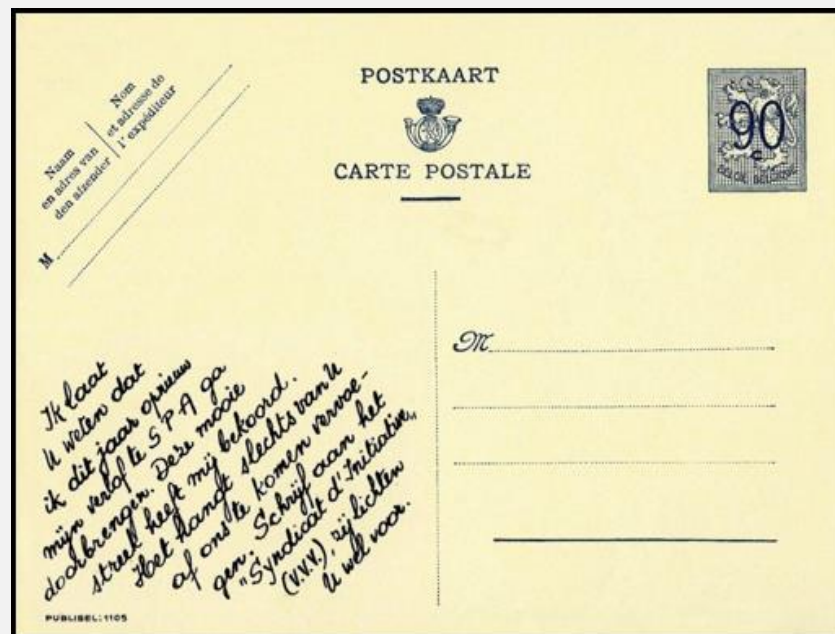 Naam
en adres van
den afzender
Nom
et adresse de
l'expéditeur
M
POSTKAART
CARTE POSTALE
90
c
BELGIË BELGIQUE
M
Ik laat
U weten dat
ik dit jaar opnieuw
mijn verlof te SPA ga
doorbrengen. Deze mooie
streek heeft mij bekoord.
Het hangt slechts van U
af ons te komen vervoe-
gen. Schrijf aan het
"Syndicat d'Initiative"
(V.V.V.), zij lichten
U wel voor.
PUBLIBEL: 1105